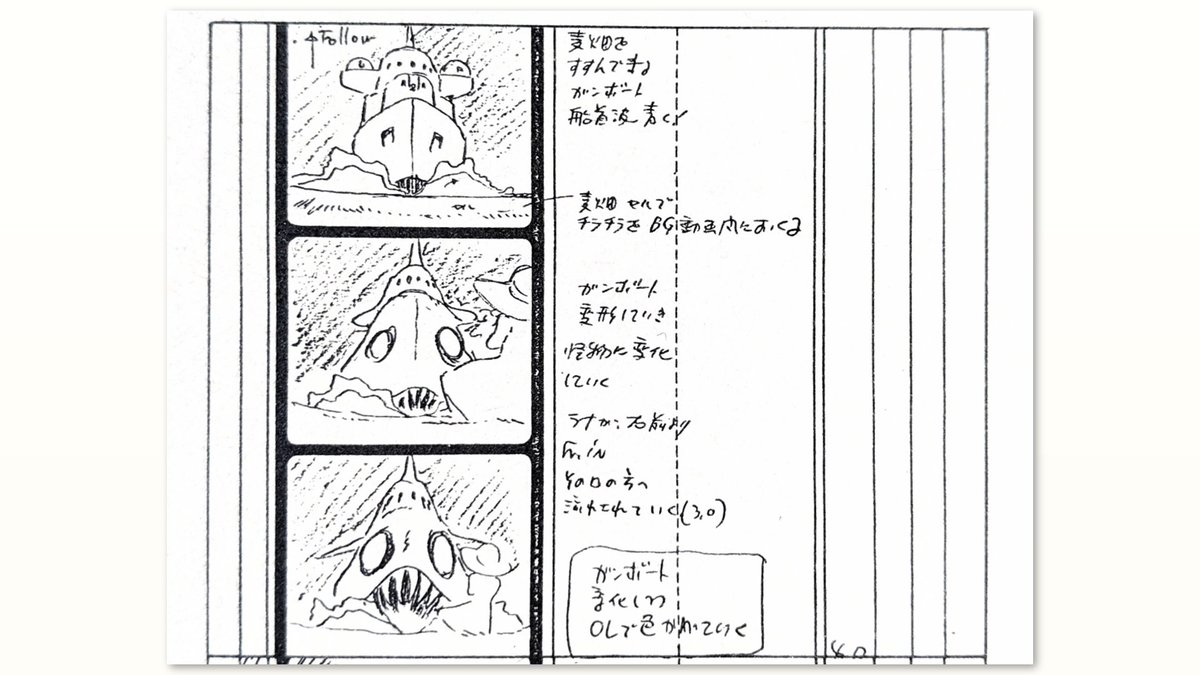 ↑Follow
麦畑を
すすんでくる
ガンボート
船首波 青く
麦畑 セルで
チラチラを BG 動画
ガンボート
変形していき
怪物に変化
していく
ラナが 右前より
Fr. in
その口の方へ
流されていく (3.0)
ガンボート
変化しつつ
OLで色がかわっていく